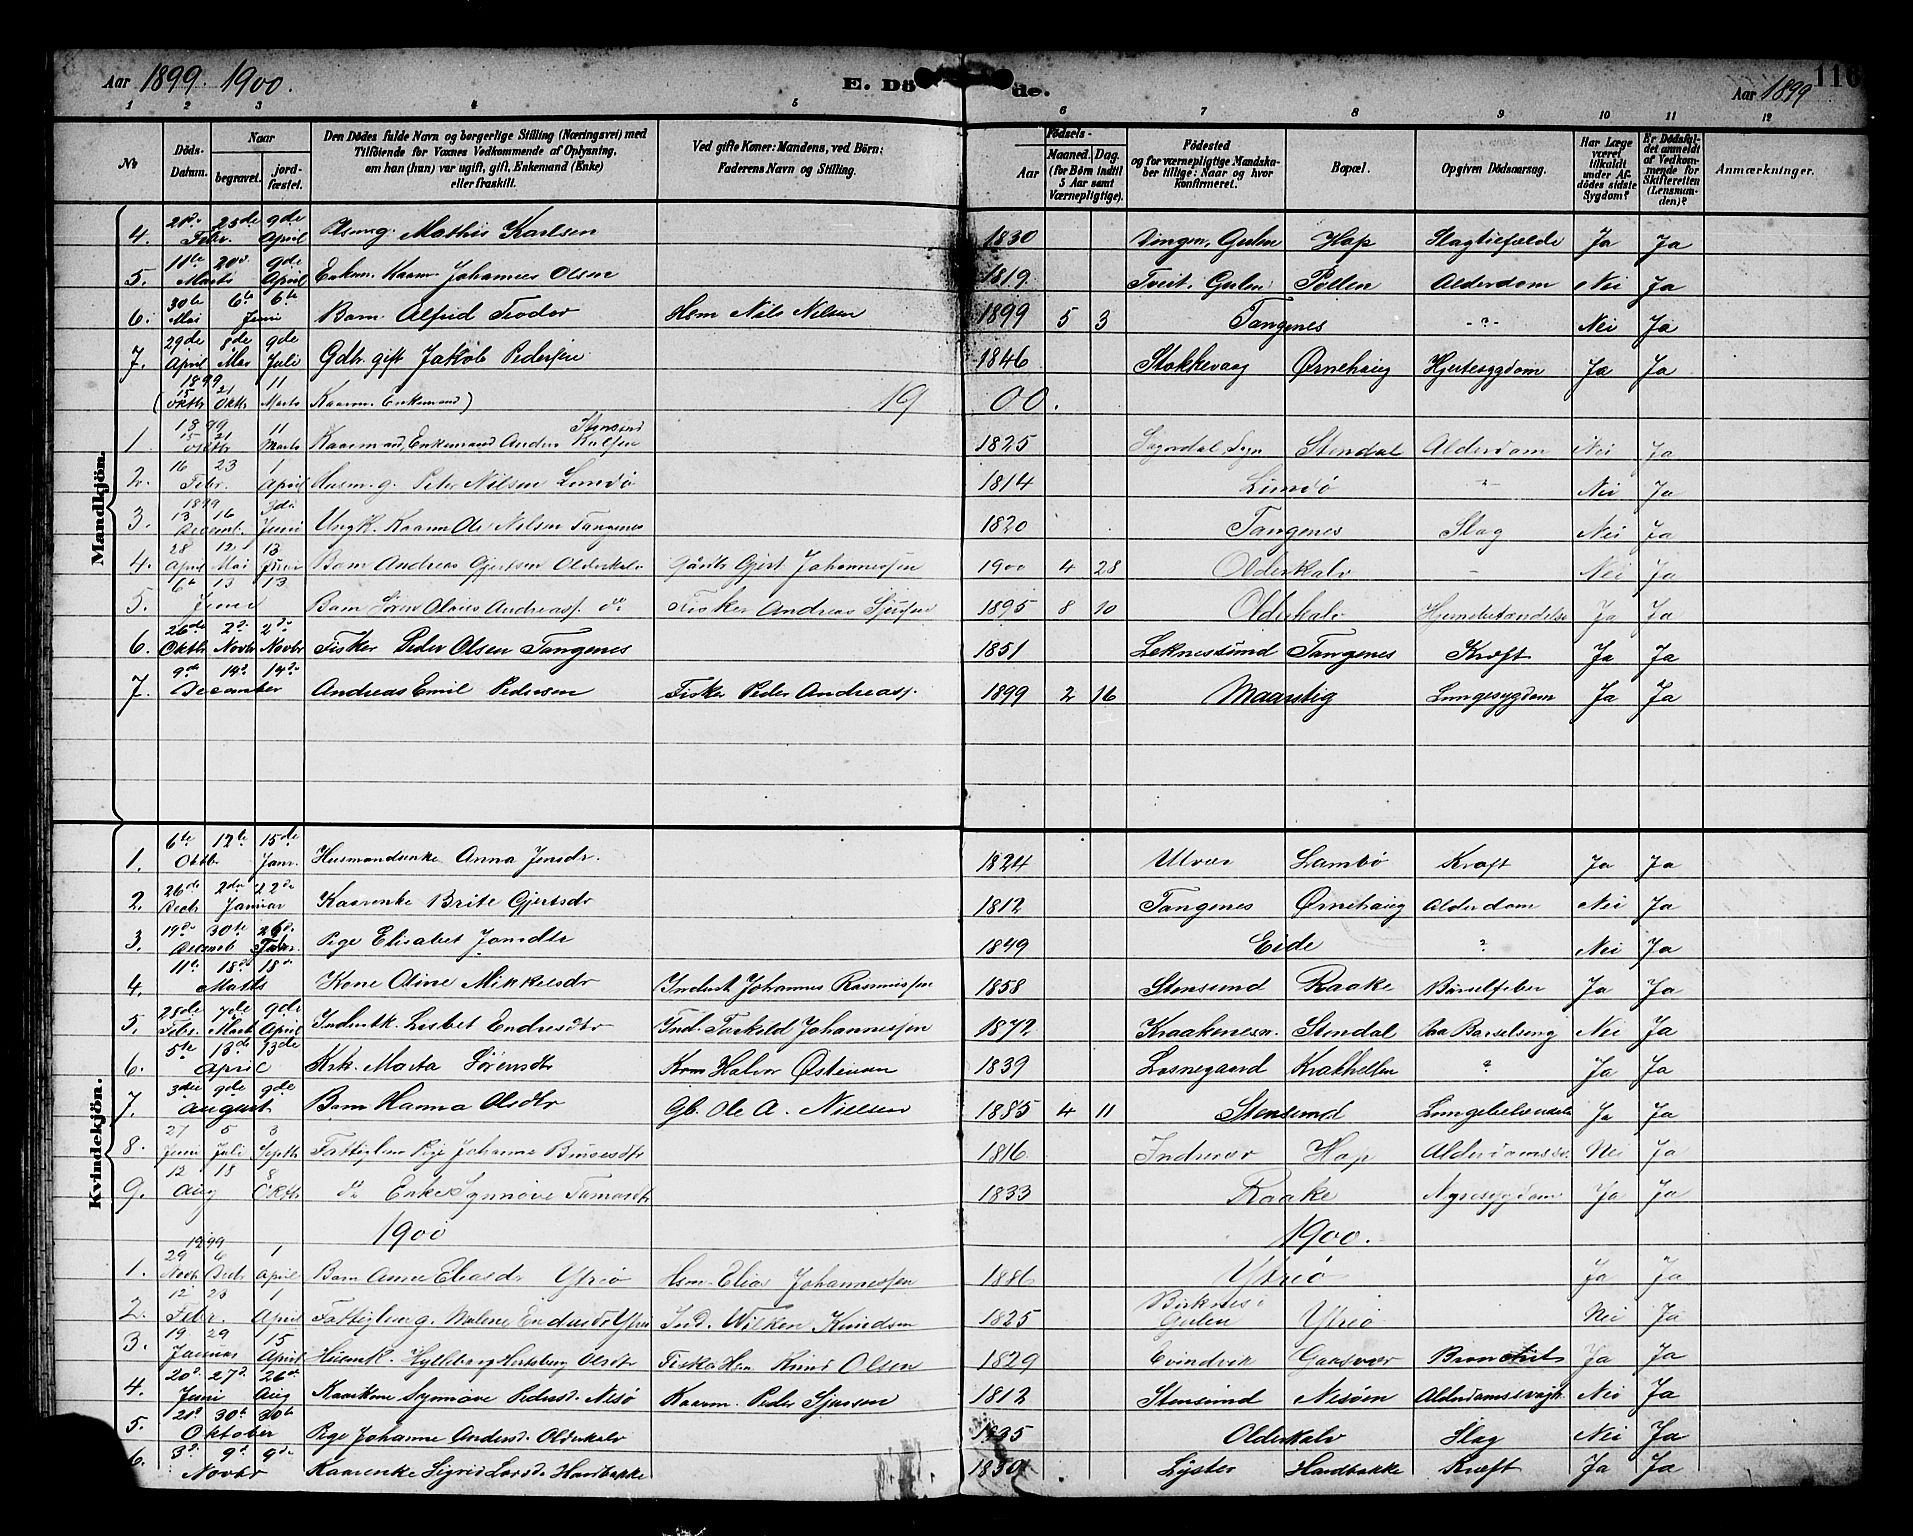 Aar 1899. 1900. E. Dö de. Aar 1899 116
1 2 3 4 5 6 7 8 9 10 11 12
No
Döds-Datum.
Naar
begravet.
jord-fæstet.
Den Dödes fulde Navn og borgerlige Stilling (Næringsvei) med
Tilföiende for Voxnes Vedkommende af Oplysning,
om han (hun) var ugift, gift, Enkemand (Enke)
eller fraskilt.
Ved gifte Koner: Mandens, ved Börn:
Faderens Navn og Stilling.
Födsels-
Aar
Maaned. Dag.
(for Börn indtil
5 Aar samt
Værnepligtige).
Födested
og for værnepligtige Mandska-
ber tillige: Naar og hvor
konfirmeret.
Bopæl.
Opgiven Dödsaarsag.
Har Læge
været
tilkaldt
under Af-
dödes sidste
Sygdom?
Er Dödsfal-
det anmeldt
af Vedkom-
mende for
Skifteretten
(Lensman-
den)?
Anmærkninger.
Mandkjön.
4. Febr. 25de 9de April Mathis Karlsen 1830 Gulen Hap Slagtilfælde Ja Ja
5. 11te Marts 9de April Enkem. Kaarm. Johannes Olsen 1819 Tveit, Gulen Pollen Alderdom Nei Ja
6. 30te Mai 6te Juni 6te Barn Alfred Teodor Hsm Nils Nilsen 1899 5 3 Tangenes -"- Nei Ja
7. 29de April 8de Mai 9de Juli Gdbr. gift Jakob Pedersen 1846 Stokkevaag Ørnehaug Hjertesygdom Ja Ja
(1899 15 Oktbr 21 Oktbr 11 Marts Kaarm. Enkemand) 19 00.
1. 1899 15 21 Oktbr 11 Marts Kaarmand, Enkemand Anders Knudsen 1825 Sogn Stendal Alderdom Nei Ja
2. 16 23 Febr. 1 April Husm. g. Peter Nilsen Lambø 1814 Lambø -"- Nei Ja
3. 1899 13 16 Decemb. 3die Juni Ungk. Kaarm Ole Nilsen Tangenes 1820 Tangenes Slag Nei Ja
4. 28 April 12 Mai 13 Juni Barn Andreas Gjertsen Olderkalv Gjert Johannessen 1900 4 28 Olderkalv - Nei Ja
5. 6te 13 13 Juni Barn Søren Olaus Andreass. do Fisker Andreas Sjursen 1895 8 10 Olderkalv Hjernebetændelse Ja Ja
6. 26de Oktbr 2d Novbr 2d Novbr Fisker Peder Olsen Tangenes 1851 Leknessund Tangenes Kræft Ja Ja
7. 9de 14d 14d December Andreas Emil Pedersen Fisker Peder Andreass. 1899 2 16 Maarstig Lungesygdom Ja Ja
Kvindekjön.
1. 6te Oktb. 12te 15de Janr. Husmandsenke Anna Jensdr. 1824 Utvær Lambø Kræft Ja Ja
2. 26de Decbr 2den 22de Januar Kaarenke Brite Gjertsdr 1812 Tangenes Ørnehaug Alderdom Nei Ja
3. 19de Decemb 30te 26de Janr. Pige Elisabet Jonsdtr 1849 Eide ? Nei Ja
4. 11te 18de 18de Marts Kone Oline Mikkelsdr Inderst Johannes Rasmussen 1858 Stensund Raake Barselfeber Ja Ja
5. 28de Febr. 7de Marts 9de April Inderstk. Lisbet Endresdtr Ind. Torkild Johannessen 1872 Kraakenesv. Stendal Paa Barselseng Nei Ja
6. 5te 13de 13de April Krk. Marta Sørensdtr Krm Halvor Østensen 1839 Losnegaard Krakhellen ? Ja Ja
7. 3die 9de 9de August Barn Hanna Olsdtr Gb. Ole A. Nielsen 1885 4 11 Stensund Lungebetændelse Ja Ja
8. 27 Juni 5 Juli 3 Septbr Fattiglem Pige Johanne 1816 Indrevær Hap Nei Ja
9. 12 18 Aug 8 Oktbr do Enke Synnøve Tomasdtr 1833 Raake Nyresygdom Ja Ja
1900 1900.
1. 1899 29 Novbr 6 Decbr 1 April Barn Anne Eliasdr Ytrø Hsm. Elias Johannessen 1886 Ytrø Ja Ja
2. 12 23 Febr. 1 April Fattiglem g. Malene Endresdr Ytrø Ind. Wilken Knudsen 1825 Birknes i Gulen Ytrø Nei Ja
3. 19 29 Januar 15 April Husmk. Olsdtr Knud Olsen 1829 Evindvik Gaasvær Ja Ja
4. 20d 27d Juni 26de Aug Kaarkone Synnøve Pedersd. Nesø Kaarm. Peder Sjursen 1812 Stensund Nesøen Alderdomssvagh. Nei Ja
5. 30te 30te Oktober Pige Johanne Andersd. Olderkalv Olderkalv Slag Nei Ja
6. 3d 9d 9de Novbr Kaarenke Sigrid Larsd. Hardbakke 1830 Lyster Hardbakke Kræft Ja Ja